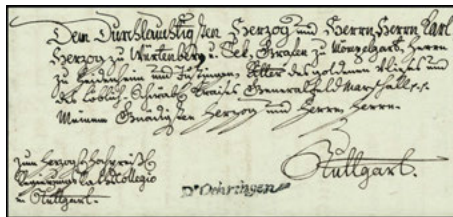 Dem Durchlauchtigsten Herzog und Herrn, Herrn Carl
Herzog zu Würtenberg u. Tek, Grafen zu Mompelgart, Herrn
zu Heidenheim und Justingen, Ritter des goldenen Vließes und
des Löbl. Schwäb. Craises General Feld Marschall p. p.
Meinem Gnädigsten Herzog und Herrn, Herrn.
Zum Herzogl.
Regierungs Raths Collegio
in Stuttgart.
Stuttgart.
D'Oehringen